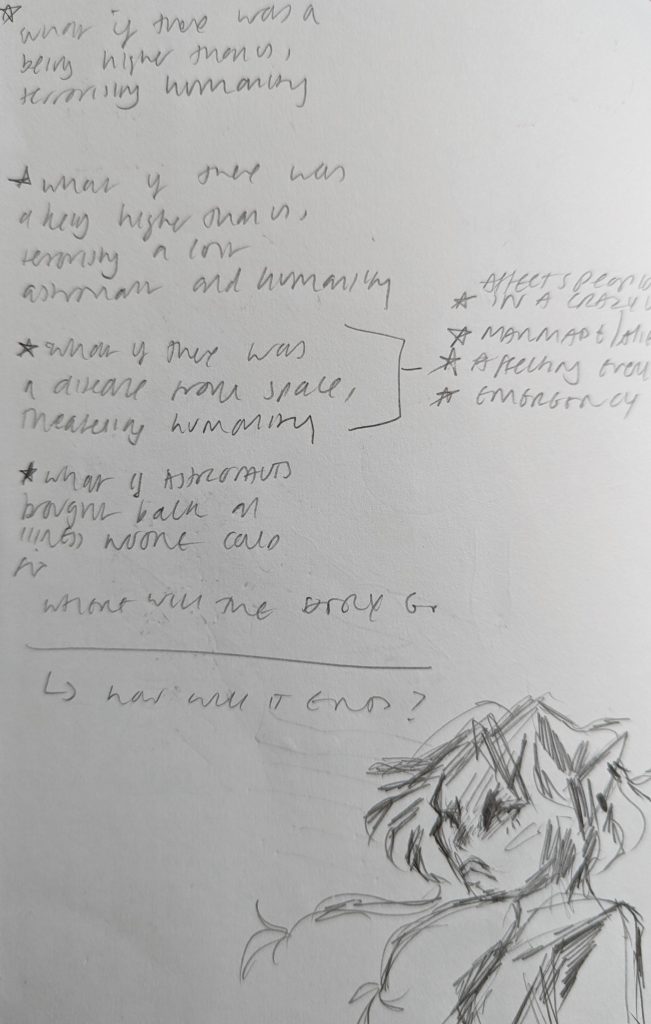 what if there was a
being higher than us,
terrorising humanity
what if there was
a being higher than us,
terrorising a lost
astronaut and humanity
Affects people
IN A CRAZY
MANMADE/
Affecting
EMERGENCY
what if there was
a disease from space,
threatening humanity
what if ASTRONAUTS
bought back an
illness
WHERE WILL THE STORY GO
HOW WILL IT END?